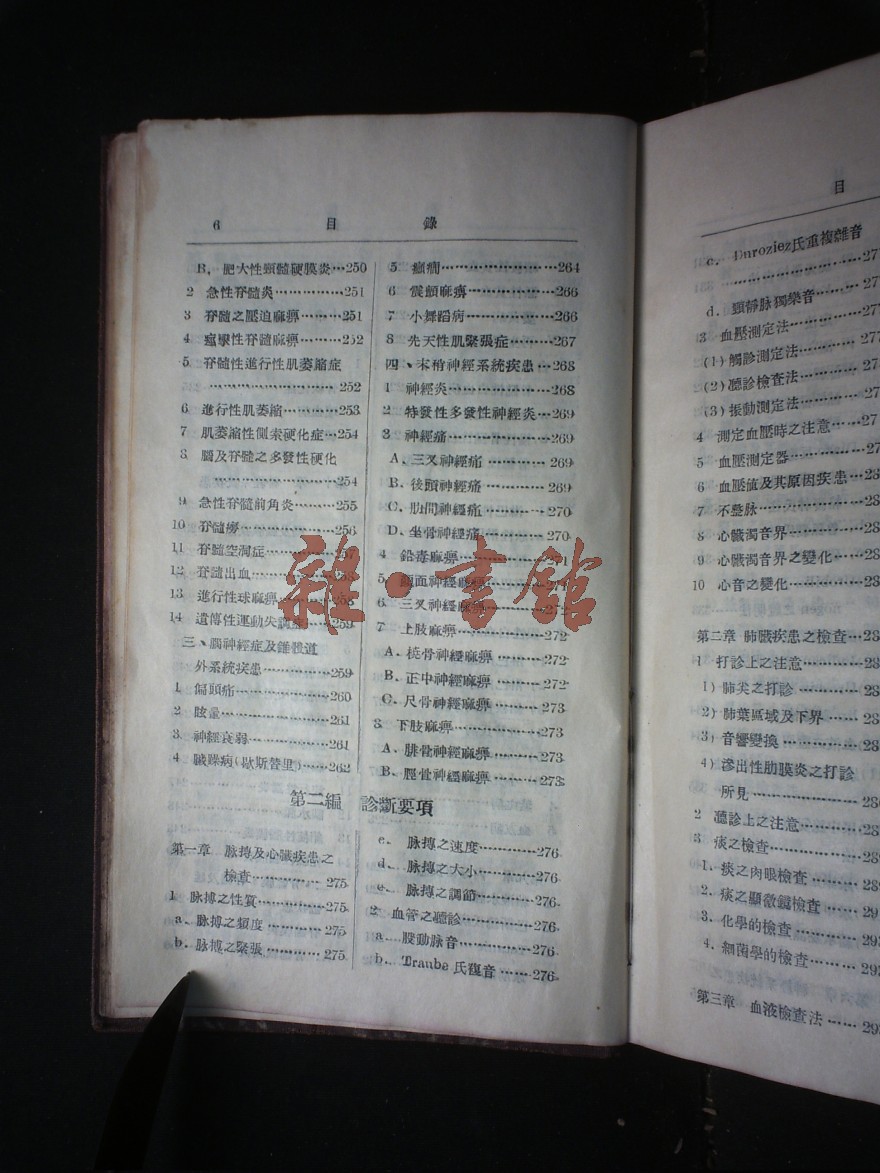 6 目 錄
B, 肥大性頸髓硬膜炎…250
2 急性脊髓炎…………251
3 脊髓之壓迫麻痹………251
4 痙攣性脊髓麻痹………252
5 脊髓性進行性肌萎縮症
……………………252
6 進行性肌萎縮…………253
7 肌萎縮性側索硬化症…254
8 腦及脊髓之多發性硬化
……………………254
9 急性脊髓前角炎………255
10 脊髓癆………………256
11 脊髓空洞症…………257
12 脊髓出血
13 進行性球麻痹………258
14 遺傳性運動失調症…259
三、腦神經症及錐體道
外系統疾患…………259
1 偏頭痛………………260
2 眩暈…………………261
3 神經衰弱……………261
4 臟躁病(歇斯替里)……262
5 癲癇…………………264
6 震顫麻痹……………266
7 小舞蹈病……………266
8 先天性肌緊張症………267
四、末稍神經系統疾患…268
1 神經炎………………268
2 特發性多發性神經炎…269
3 神經痛………………269
A、三叉神經痛…………269
B、後頭神經痛…………269
C、肋間神經痛…………270
D、坐骨神經痛…………270
4 鉛毒麻痹……………271
5 顏面神經麻痹
6 三叉神經麻痹………272
7 上肢麻痹……………272
A、橈骨神經麻痹………272
B、正中神經麻痹………272
C、尺骨神經麻痹………273
8 下肢麻痹……………273
A、腓骨神經麻痹………273
B、脛骨神經麻痹………273
雜·書館
第二編 診斷要項
第一章 脉搏及心臟疾患之
檢查…………275
1 脉搏之性質…………275
a、脉搏之頻度…………275
b、脉搏之緊張…………275
c、脉搏之速度…………276
d、脉搏之大小…………276
e、脉搏之調節…………276
2 血管之聽診…………276
a、股動脉音……………276
b、Traube氏複音……276
目
c. Duroziez氏重複雜音
……………………27
d. 頸靜脉獨樂音………27
3 血壓測定法…………27
(1) 觸診測定法………27
(2) 聽診檢查法………27
(3) 振動測定法………27
4 測定血壓時之注意……27
5 血壓測定器…………28
6 血壓値及其原因疾患…28
7 不整脉………………28
8 心臟濁音界…………28
9 心臟濁音界之變化……28
10 心音之變化…………
第二章 肺臟疾患之檢查…28
1 打診上之注意………28
1) 肺尖之打診…………28
2) 肺葉區域及下界……28
3) 音響變換……………28
4) 滲出性肋膜炎之打診
所見…………………28
2 聽診上之注意………28
3 痰之檢查……………28
1. 痰之肉眼檢查………28
2. 痰之顯微鏡檢查……29
3. 化學的檢查…………29
4. 細菌學的檢查………29
第三章 血液檢查法……29